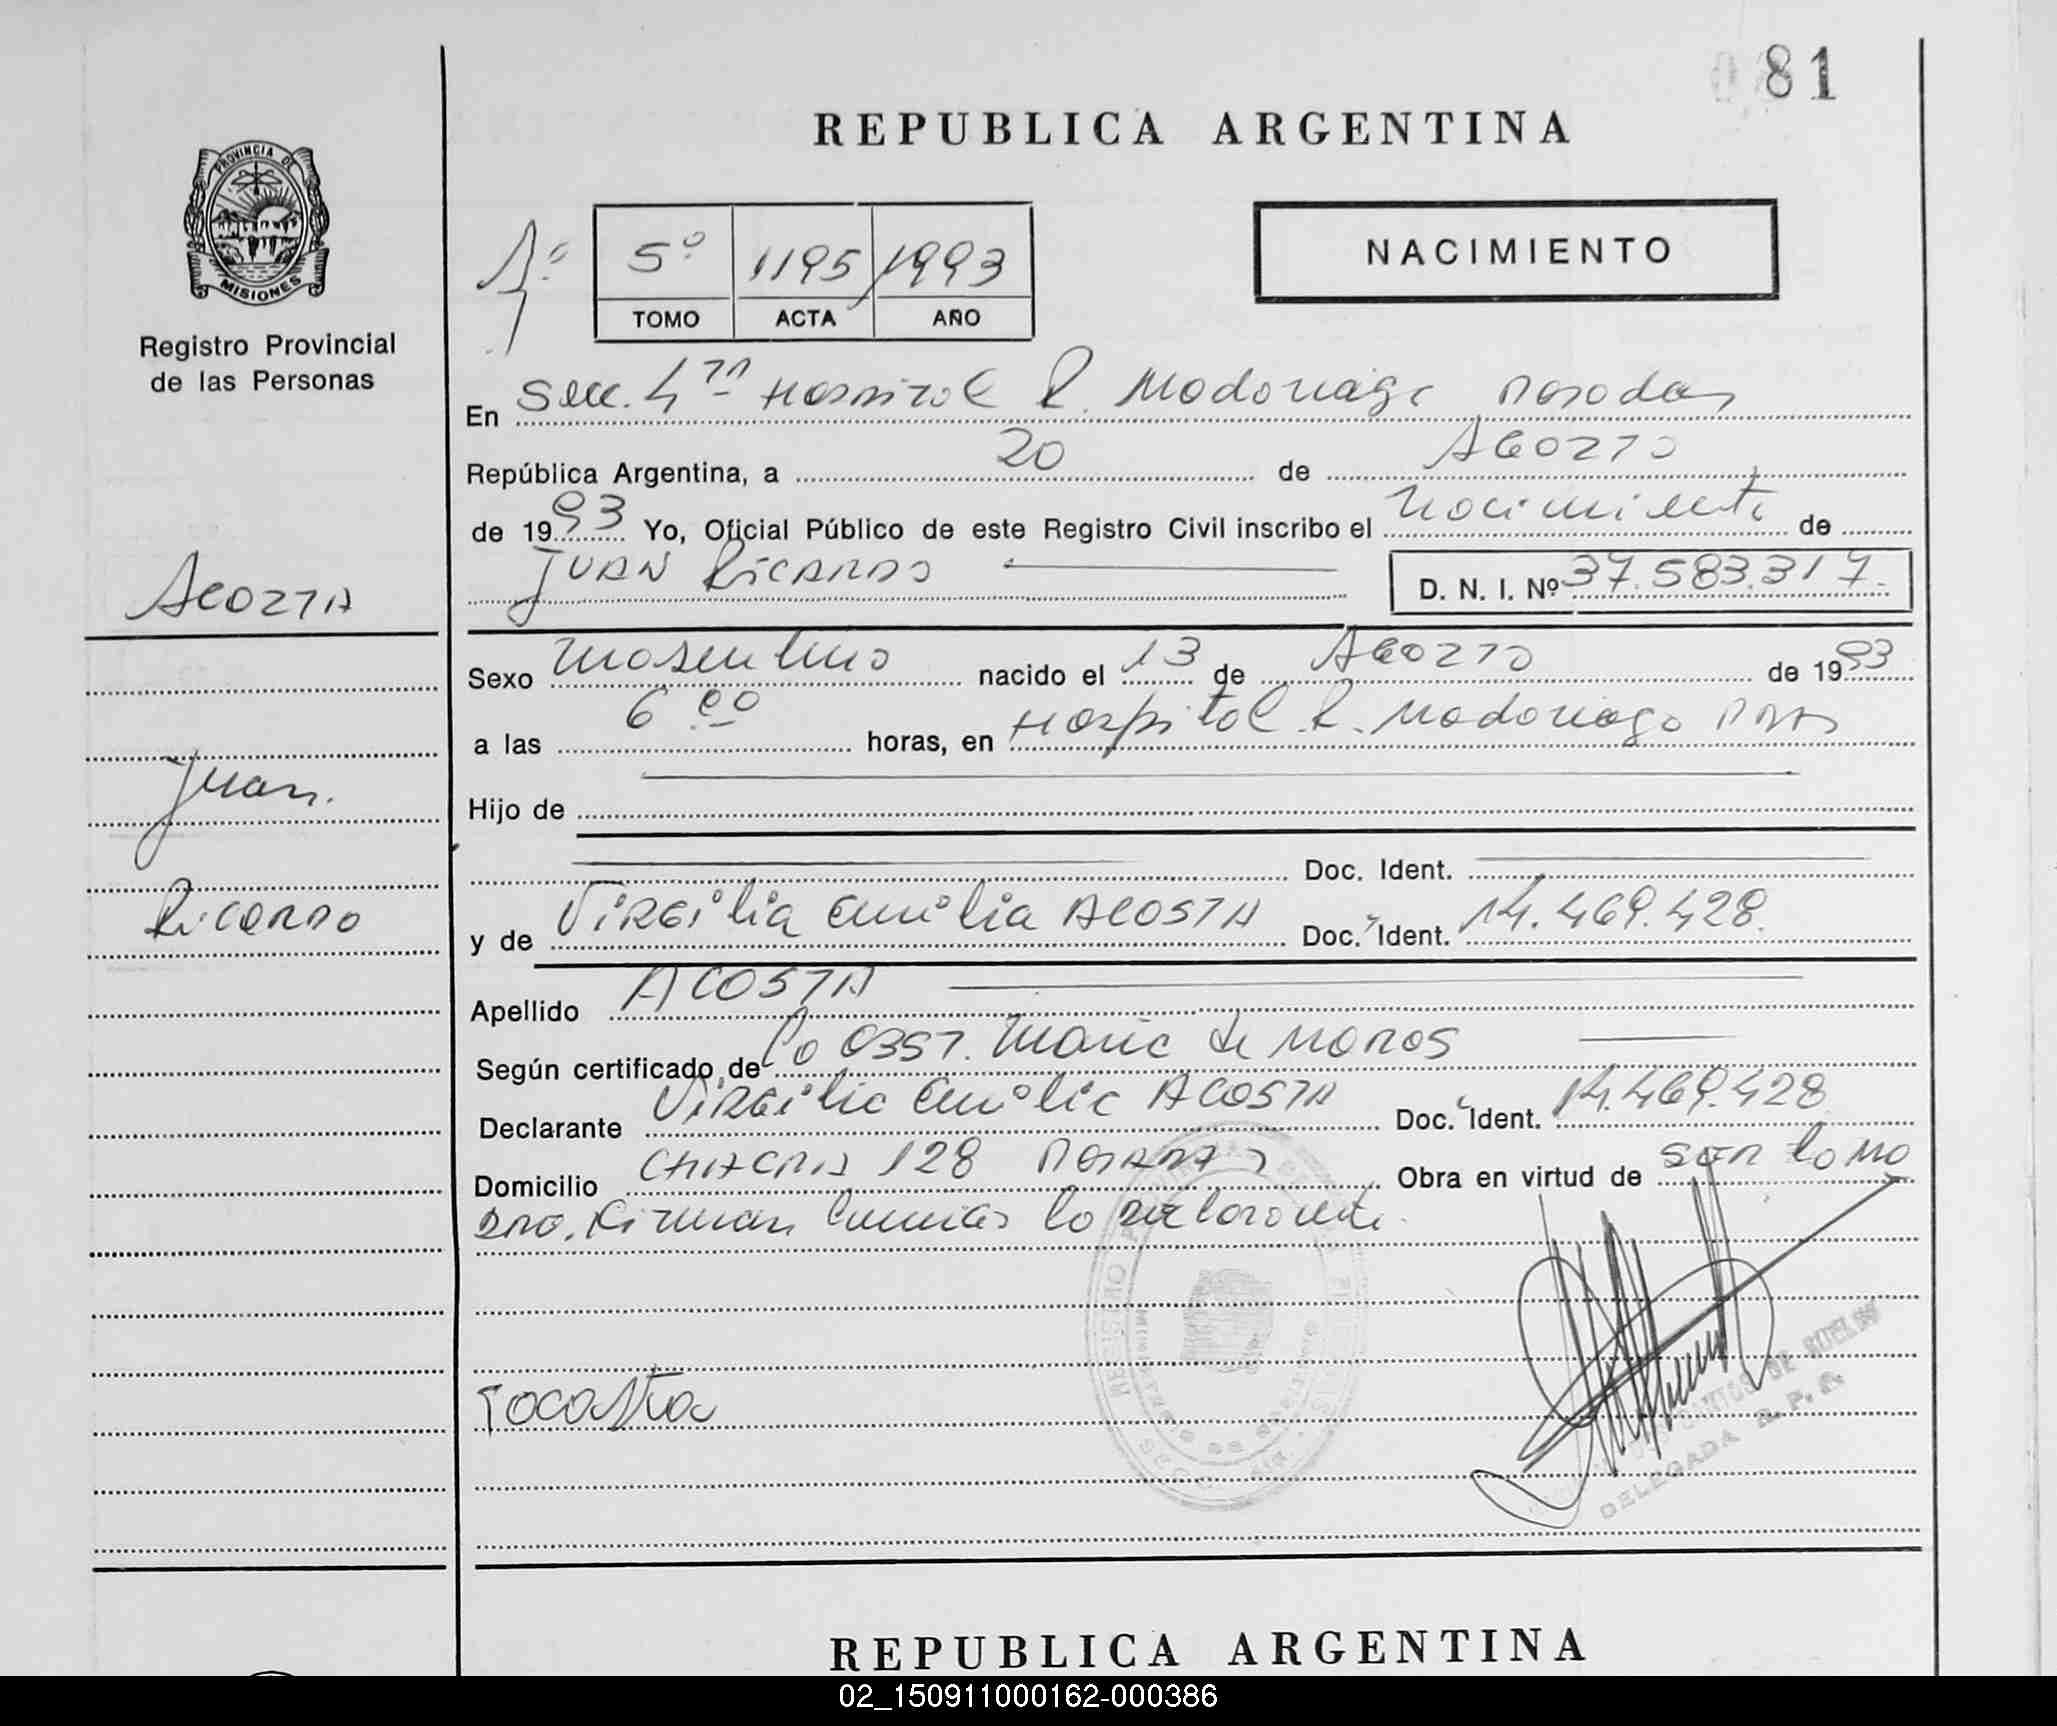 081
REPUBLICA ARGENTINA
PROVINCIA DE
MISIONES
Registro Provincial
de las Personas
5º 1195 1993
TOMO ACTA AÑO
NACIMIENTO
En Secc. 4ta Hospital R. Madariaga Posadas
República Argentina, a 20 de Agosto
de 1993 Yo, Oficial Público de este Registro Civil inscribo el nacimiento de
Juan Ricardo D. N. I. Nº 37.583.317.
Acosta
Sexo masculino nacido el 13 de Agosto de 1993
a las 6 00 horas, en Hospital R. Madariaga Pdas
Juan
Hijo de
Doc. Ident.
Ricardo
y de Virgilia Emilia ACOSTA Doc. Ident. 14.469.428.
Apellido ACOSTA
Según certificado de la Obst. Maria de
Declarante Virgilia Emilia ACOSTA Doc. Ident. 14.469.428
Domicilio CHACRA 128 Posadas Obra en virtud de ser la ma
dre. Firman la declarante.
DELEGADA R. P. P.
REPUBLICA ARGENTINA
02_150911000162-000386